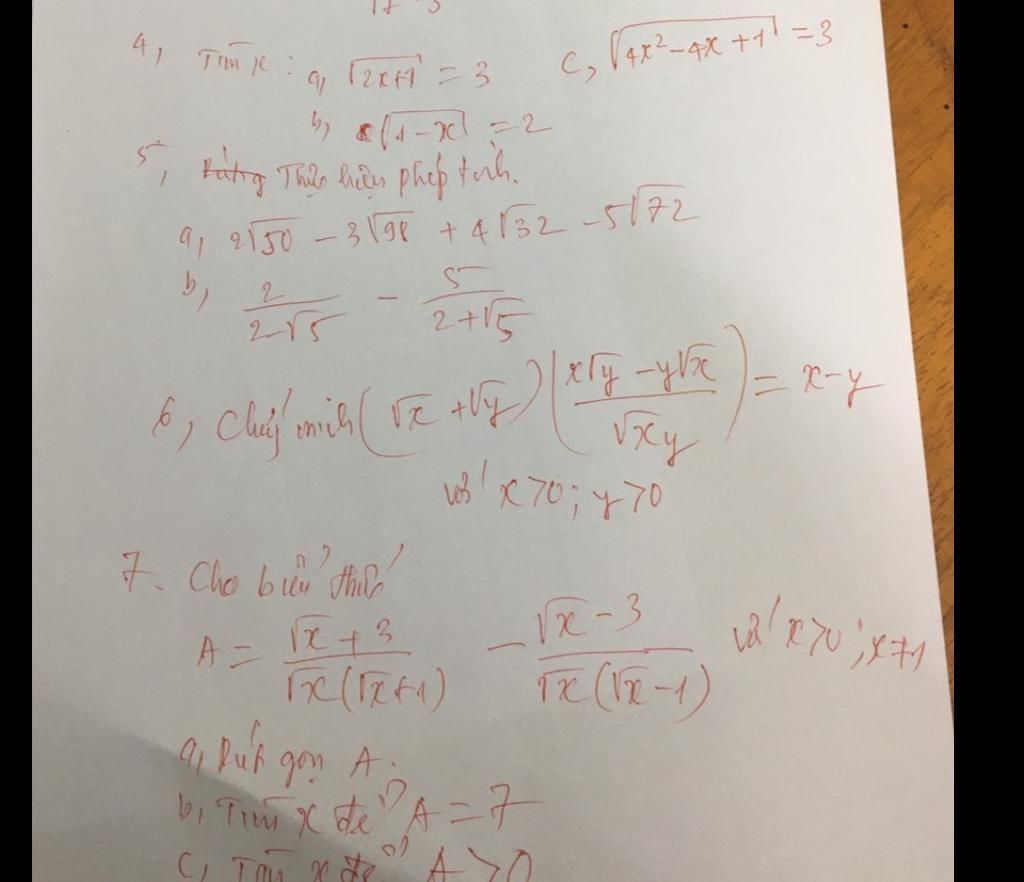 4, Tìm x : a, √(2x+1) = 3 c, √(4x² - 4x + 1) = 3
b, √(1 - x) = 2
5, Thực hiện phép tính.
a, 2√50 - 3√98 + 4√32 - 5√72
b, 2/(2-√5) - 5/(2+√5)
6, Chứng minh (√x + √y) ((x√y - y√x)/√xy) = x - y
với x > 0 ; y > 0
7. Cho biểu thức
A = (√x + 3)/(√x(√x+1)) - (√x - 3)/(√x(√x - 1)) với x > 0 ; x ≠ 1
a, Rút gọn A.
b, Tìm x để A = 7
c, Tìm x để A > 0